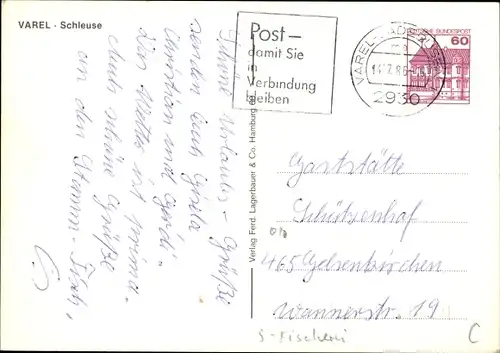 VAREL · Schleuse
Post –
damit Sie
in
Verbindung
bleiben
VAREL
2930
DEUTSCHE BUNDESPOST
60
Verlag Ferd. Lagerbauer & Co. Hamburg
Urlaubs - Grüße
senden Euch Gisela
Christian und Gerdi.
Das Wetter ist prima.
Auch schöne Grüße
an den Stamm-Tisch,
Gaststätte
Schützenhof
465 Gelsenkirchen
Wannerstr. 19
S-Fischerei
C